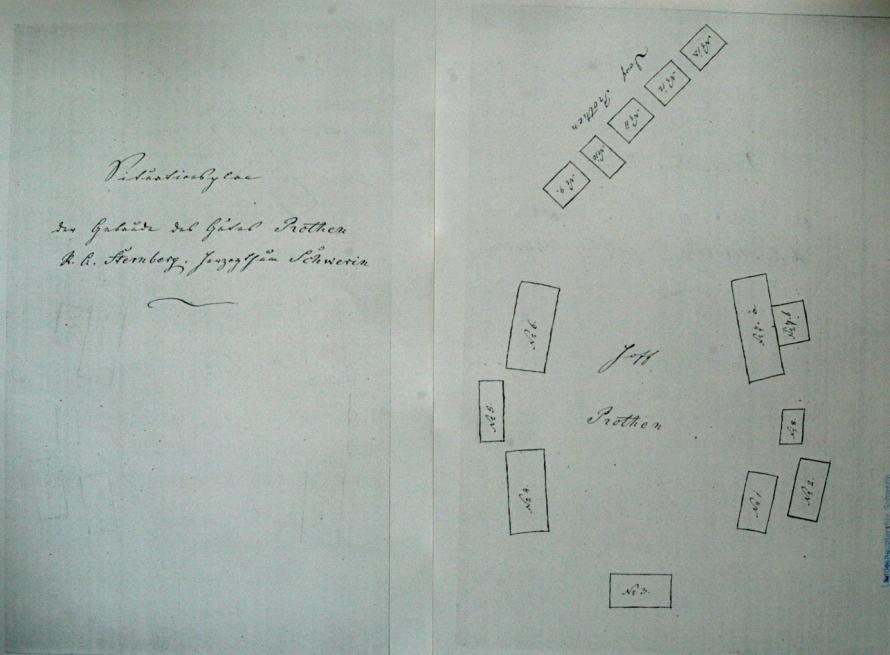 Situationsplan
der Gebäude des Gutes Prothen
R. A. Sternberg. Herzogthum Schwerin
Dorf Prothen
№ 12
№ 11
№ 10
№ 9.
№ 6.
№ 7. a
№ 7. b
Hoff
№ 5.
Prothen
№ 8.
№ 4.
№ 1.
№ 2.
№ 3.